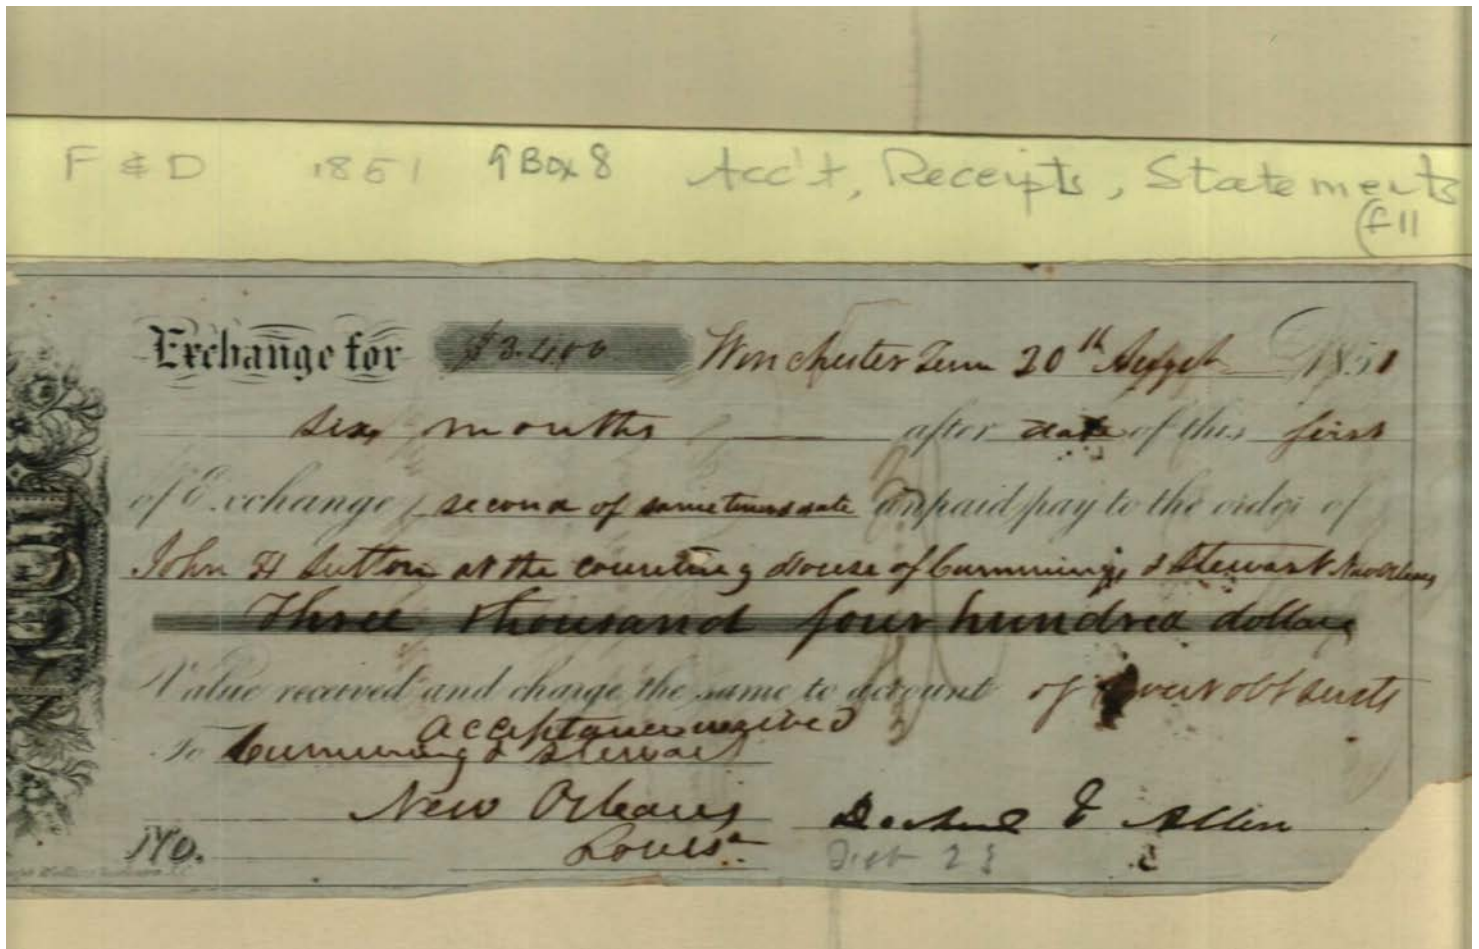 F & D 1851 9 Box 8 Acc't, Receipts, Statements
(f 11
Exchange for $3.400 Winchester Tenn 20th August 1851
six months after date of this first
of Exchange second of same tenor & date unpaid pay to the order of
John H Sutton at the counting House of Cummings & Stewart New Orleans
Three thousand four hundred dollars
Value received and charge the same to account of your obt servts
acceptance received
To Cumming & Stewart
New Orleans & Allen
No. Louisa